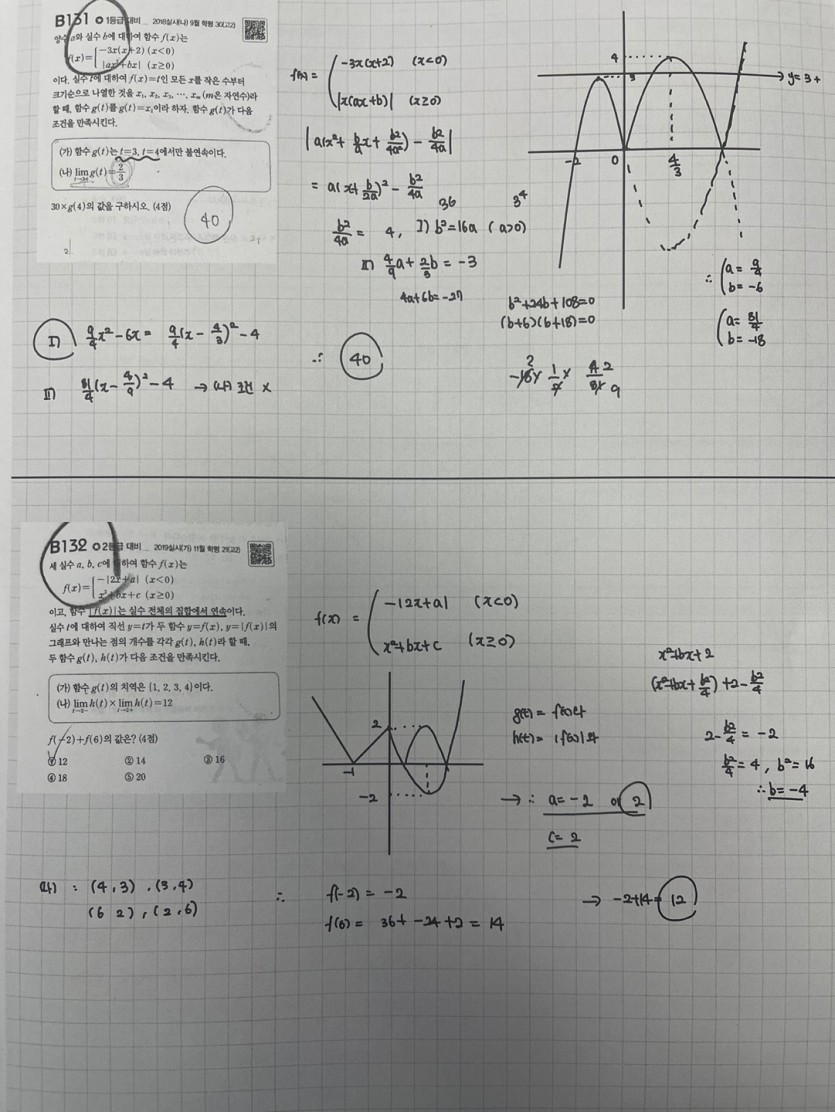 B131 1등급 대비 _ 2018실시(나) 9월 학평 30(고2)
양수 a와 실수 b에 대하여 함수 f(x)는
f(x)={ -3x(x+2) (x<0)
|ax²+bx| (x≥0)
이다. 실수 t에 대하여 f(x)=t인 모든 x를 작은 수부터
크기순으로 나열한 것을 x₁, x₂, x₃, …, xₘ (m은 자연수)라
할 때, 함수 g(t)를 g(t)=x₁이라 하자. 함수 g(t)가 다음
조건을 만족시킨다.
(가) 함수 g(t)는 t=3, t=4에서만 불연속이다.
(나) lim g(t)=2/3
30×g(4)의 값을 구하시오. (4점)
40
f(x) = ( -3x(x+2) (x<0)
|x(ax+b)| (x≥0)
|a(x²+b/a x+b²/4a²) - b²/4a|
= a(x+b/2a)² - b²/4a
36 3⁴
b²/4a = 4, I) b²=16a (a>0)
II) 4/9 a+2/3 b = -3
4a+6b=-27
b²+24b+108=0
(b+6)(b+18)=0
4
3
y=3+
-2 0 4/3
∴ (a=9/4
b=-6
(a=81/4
b=-18
I) 9/4 x²-6x = 9/4(x-4/3)²-4
II) 81/4(x-4/9)²-4 → (나) 조건 ×
∴ 40
2
-18× 1/2 × 4 2/81 9
B132 2등급 대비 _ 2019실시(가) 11월 학평 21(고2)
세 실수 a, b, c에 대하여 함수 f(x)는
f(x)={ -|2x+a| (x<0)
x²+bx+c (x≥0)
이고, 함수 |f(x)|는 실수 전체의 집합에서 연속이다.
실수 t에 대하여 직선 y=t가 두 함수 y=f(x), y=|f(x)|의
그래프와 만나는 점의 개수를 각각 g(t), h(t)라 할 때,
두 함수 g(t), h(t)가 다음 조건을 만족시킨다.
(가) 함수 g(t)의 치역은 {1, 2, 3, 4}이다.
(나) lim t→2- h(t)×lim t→2+ h(t)=12
f(-2)+f(6)의 값은? (4점)
① 12 ② 14 ③ 16
④ 18 ⑤ 20
f(x) = ( -|2x+a| (x<0)
x²+bx+c (x≥0)
x²+bx+2
(x²+bx+b²/4)+2-b²/4
2-b²/4 = -2
b²/4=4, b²=16
∴ b=-4
2
-1
-2
g(t) = f(x)와
h(t) = |f(x)|와
→ ∴ a=-2 or 2
c=2
(나) : (4,3), (3,4)
(6 2), (2,6)
∴ f(-2) = -2
f(6) = 36+ -24+2 = 14
→ -2+14= 12